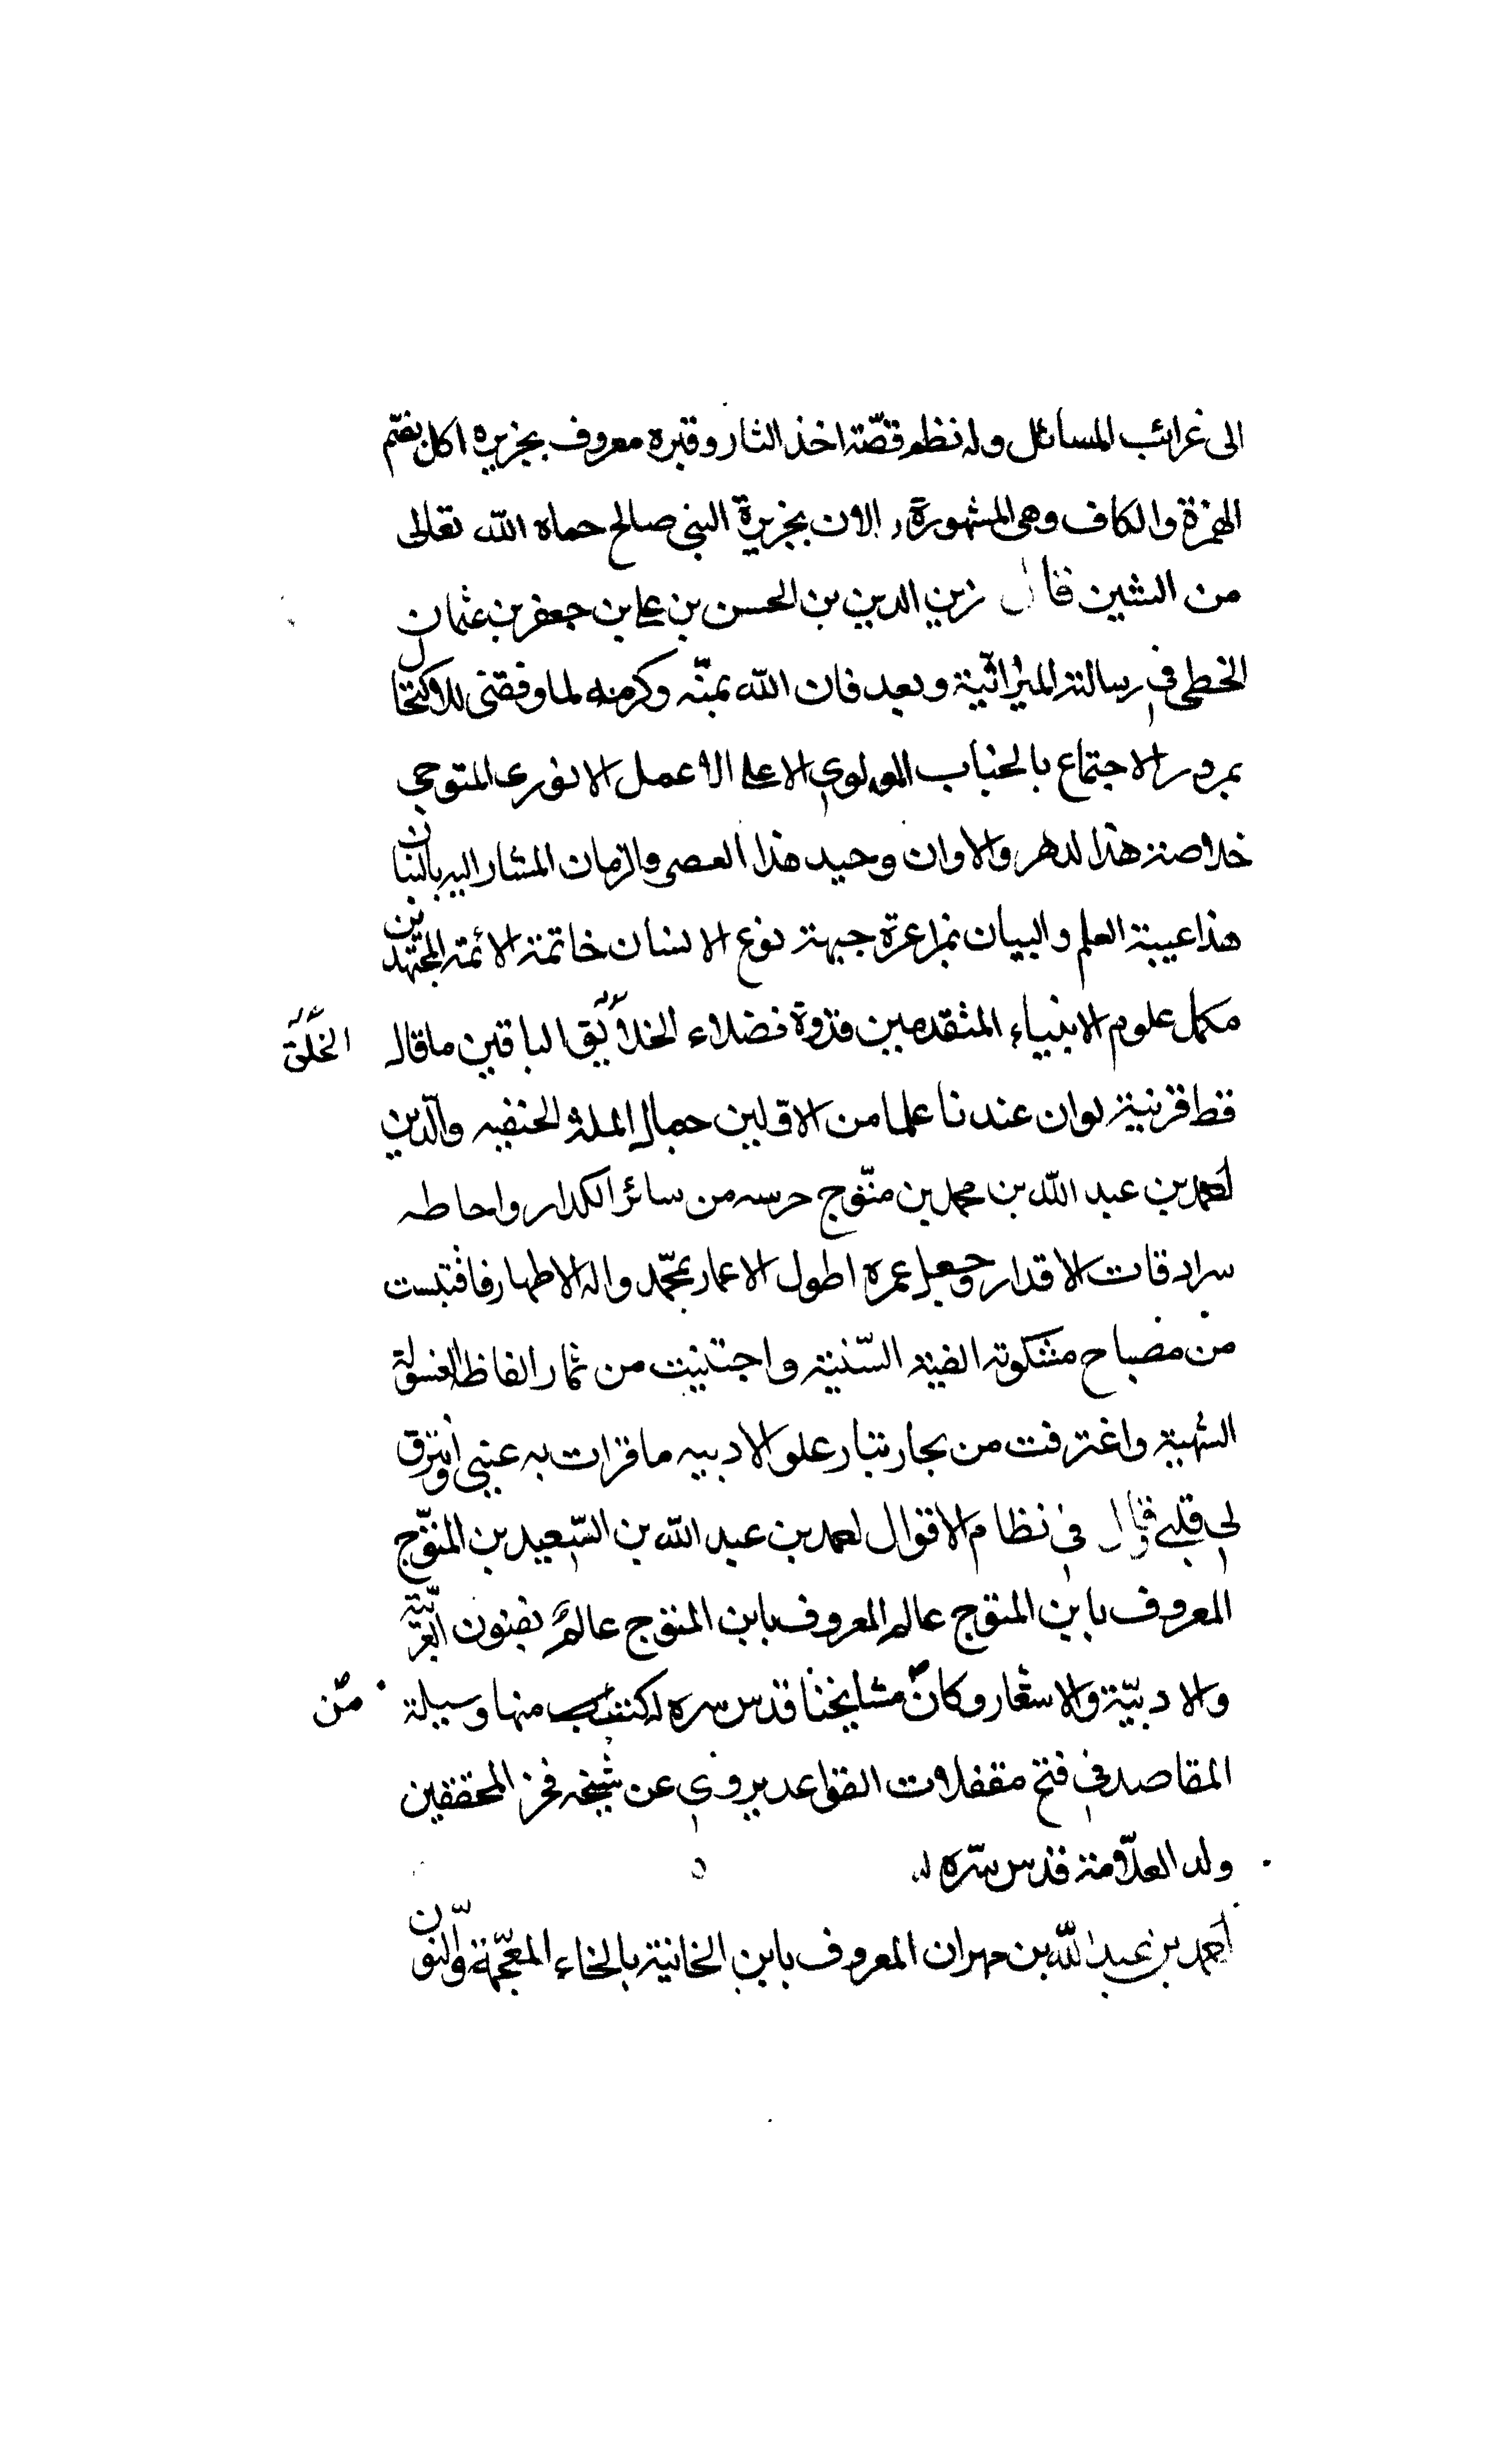 الى غرائب المسائل وله نظم قصّة اخذ الثار وقبره معروف بجزيره اكل بضمّ
الهمزة والكاف وهى المشهورة الان بجزيرة النبى صالح حماه الله تعالى
من الشين قال زين الدين بن الحسن بن على بن جعفر بن عثمان
الخطى فى رسالته الميراثية وبعد فان الله بمنّه وكرمه لما وفقنى للاكتحال
بمرور الاجتماع بالجناب المولوى الاعلى الاعمل الانورى المتوجى
خلاصة هذا لدهر والاوان وحيد هذا العصر والزمان المشار اليه بالبنان
هذا عيبة العلم والبيان غرة جبهة نوع الانسان خاتمة الائمة المجتهدين
مكمل علوم الانبياء المتقدمين قدوة فضلاء الخلائق الباقين ما قاله
الخلق
قط قرنية لوان عندنا علما من الاولين جمال الملة الحنفيه والدين
احمد بن عبد الله بن محمد بن متوّج حرسه من سائر الكدار واحاطه
سرادقات الاقدار وجعل عمره اطول الاعمار بمحمّد واله الاطهار فاقتبست
من مصباح مشكوته الفيئة السّنية واجتنيت من ثمار الفاظ العسولة
الشهية واغترفت من بحار تيار علو الادبيه ما قرات به عينى اوترق
لى قلبى قال فى نظام الاقوال احمد بن عبد الله بن السّعيد بن المتوّج
المعروف بابن المتوج عالم المعروف بابن المتوج عالم بفنون العربيّة
والادبيّة والاشعار وكان مشايخنا قدس سره له كتب منها وسيلة
من
المقاصد فى فتح مقفلات القواعد يروى عن شيخه فخر المحققين
ولد العلّامة قدس سّره
احمد بن عبد الله بن مهران المعروف بابن الخانية بالخاء المعجّمة والنون